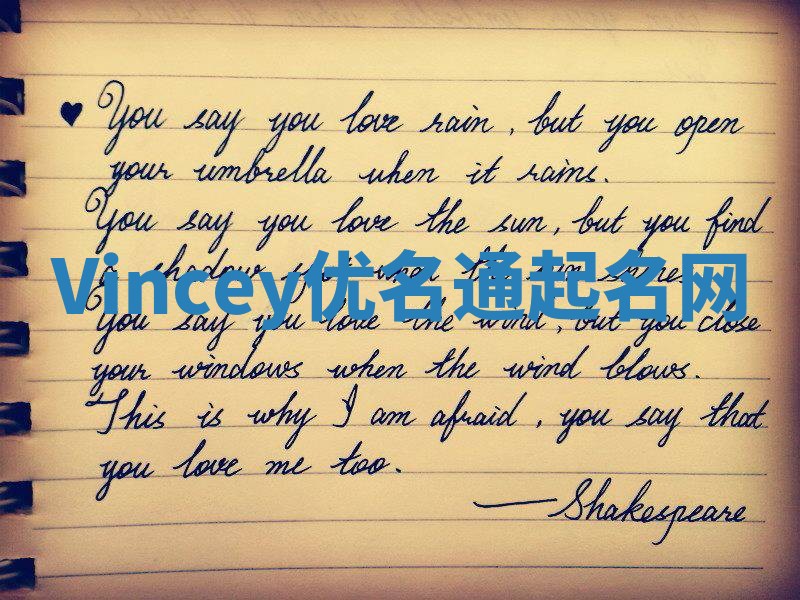 ♥ You say you love rain, but you open
your umbrella when it rains.
You say you love the sun, but you find
a shadow spot when the sun shines.
Vincey优名通起名网
You say you love the wind, but you close
your windows when the wind blows.
This is why I am afraid, you say that
you love me too.
—Shakespeare